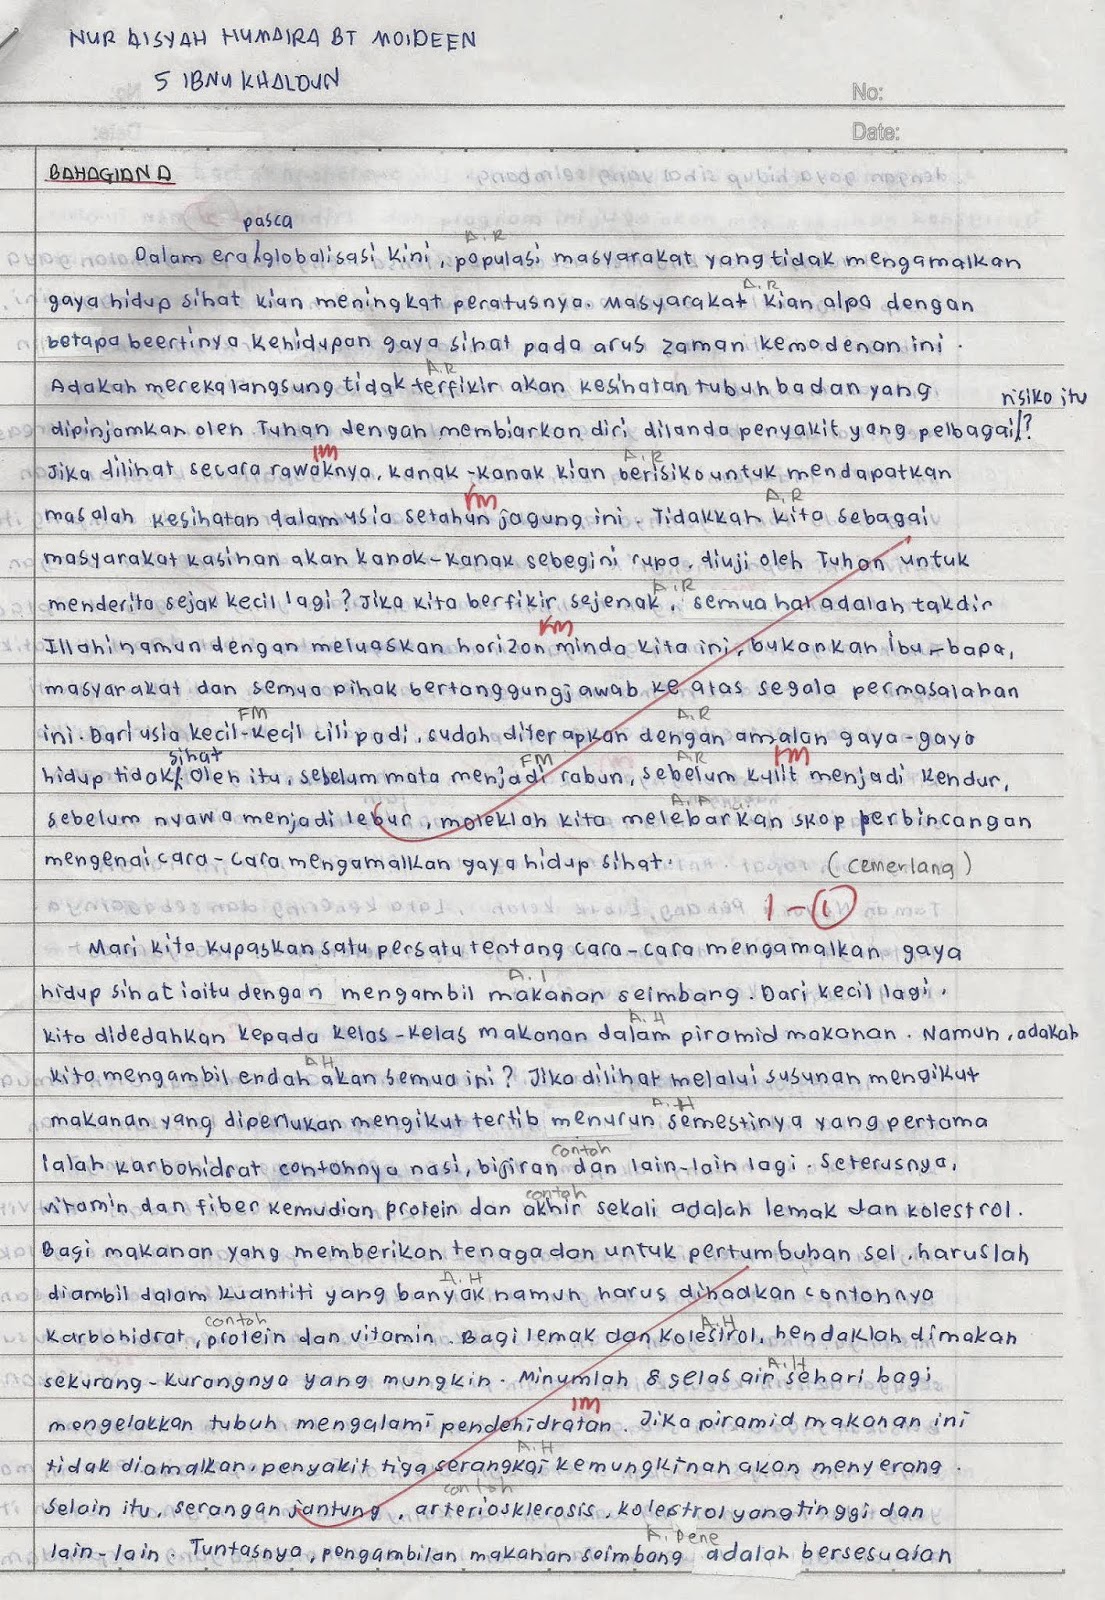 NUR AISYAH HUMAIRA BT MOIDEEN
5 IBNU KHALDUN
No:
Date:
BAHAGIAN A
pasca
Dalam era globalisasi kini, populasi masyarakat yang tidak mengamalkan
A.R
gaya hidup sihat kian meningkat peratusnya. Masyarakat kian alpa dengan
A.R
betapa beertinya kehidupan gaya sihat pada arus zaman kemodenan ini.
Adakah mereka langsung tidak terfikir akan kesihatan tubuh badan yang
A.R
risiko itu
dipinjamkan oleh Tuhan dengan membiarkan diri dilanda penyakit yang pelbagai?
Jika dilihat secara rawaknya, kanak-kanak kian berisiko untuk mendapatkan
IM
A.R
masalah kesihatan dalam usia setahun jagung ini. Tidakkah kita sebagai
FM
A.R
masyarakat kasihan akan kanak-kanak sebegini rupa, diuji oleh Tuhan untuk
menderita sejak kecil lagi? Jika kita berfikir sejenak, semua hal adalah takdir
A.R
Illahi namun dengan meluaskan horizon minda kita ini, bukankah ibu-bapa,
FM
masyarakat dan semua pihak bertanggungjawab ke atas segala permasalahan
ini. Dari usia kecil-kecil cili padi, sudah diterapkan dengan amalan gaya-gaya
FM
A.R
sihat
hidup tidak, oleh itu, sebelum mata menjadi rabun, sebelum kulit menjadi kendur,
FM
AR
FM
sebelum nyawa menjadi lebur, moleklah kita melebarkan skop perbincangan
A.A
mengenai cara-cara mengamalkan gaya hidup sihat.
(cemerlang)
1 - 1
Mari kita kupaskan satu persatu tentang cara-cara mengamalkan gaya
hidup sihat iaitu dengan mengambil makanan seimbang. Dari kecil lagi,
A.I
kita didedahkan kepada kelas-kelas makanan dalam piramid makanan. Namun, adakah
A.H
kita mengambil endah akan semua ini? Jika dilihat melalui susunan mengikut
AH
makanan yang diperlukan mengikut tertib menurun semestinya yang pertama
A.H
ialah karbohidrat contohnya nasi, bijiran dan lain-lain lagi. Seterusnya,
contoh
vitamin dan fiber kemudian protein dan akhir sekali adalah lemak dan kolestrol.
contoh
Bagi makanan yang memberikan tenaga dan untuk pertumbuhan sel, haruslah
diambil dalam kuantiti yang banyak namun harus dihadkan contohnya
A.H
karbohidrat, protein dan vitamin. Bagi lemak dan kolestrol, hendaklah dimakan
contoh
A.H
sekurang-kurangnya yang mungkin. Minumlah 8 gelas air sehari bagi
A.H
mengelakkan tubuh mengalami pendehidratan. Jika piramid makanan ini
IM
tidak diamalkan, penyakit tiga serangkai kemungkinan akan menyerang.
A.H
Selain itu, serangan jantung, arteriosklerosis, kolestrol yang tinggi dan
contoh
lain-lain. Tuntasnya, pengambilan makanan seimbang adalah bersesuaian
A. Pene